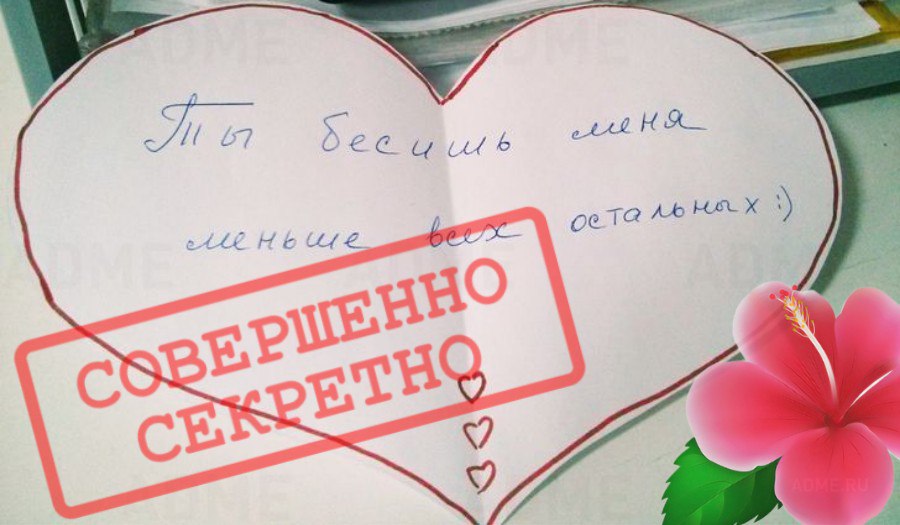 Ты бесишь меня
меньше всех остальных :)
СОВЕРШЕННО
СЕКРЕТНО
ADME
ADME
ADME
ADME
ADME.RU